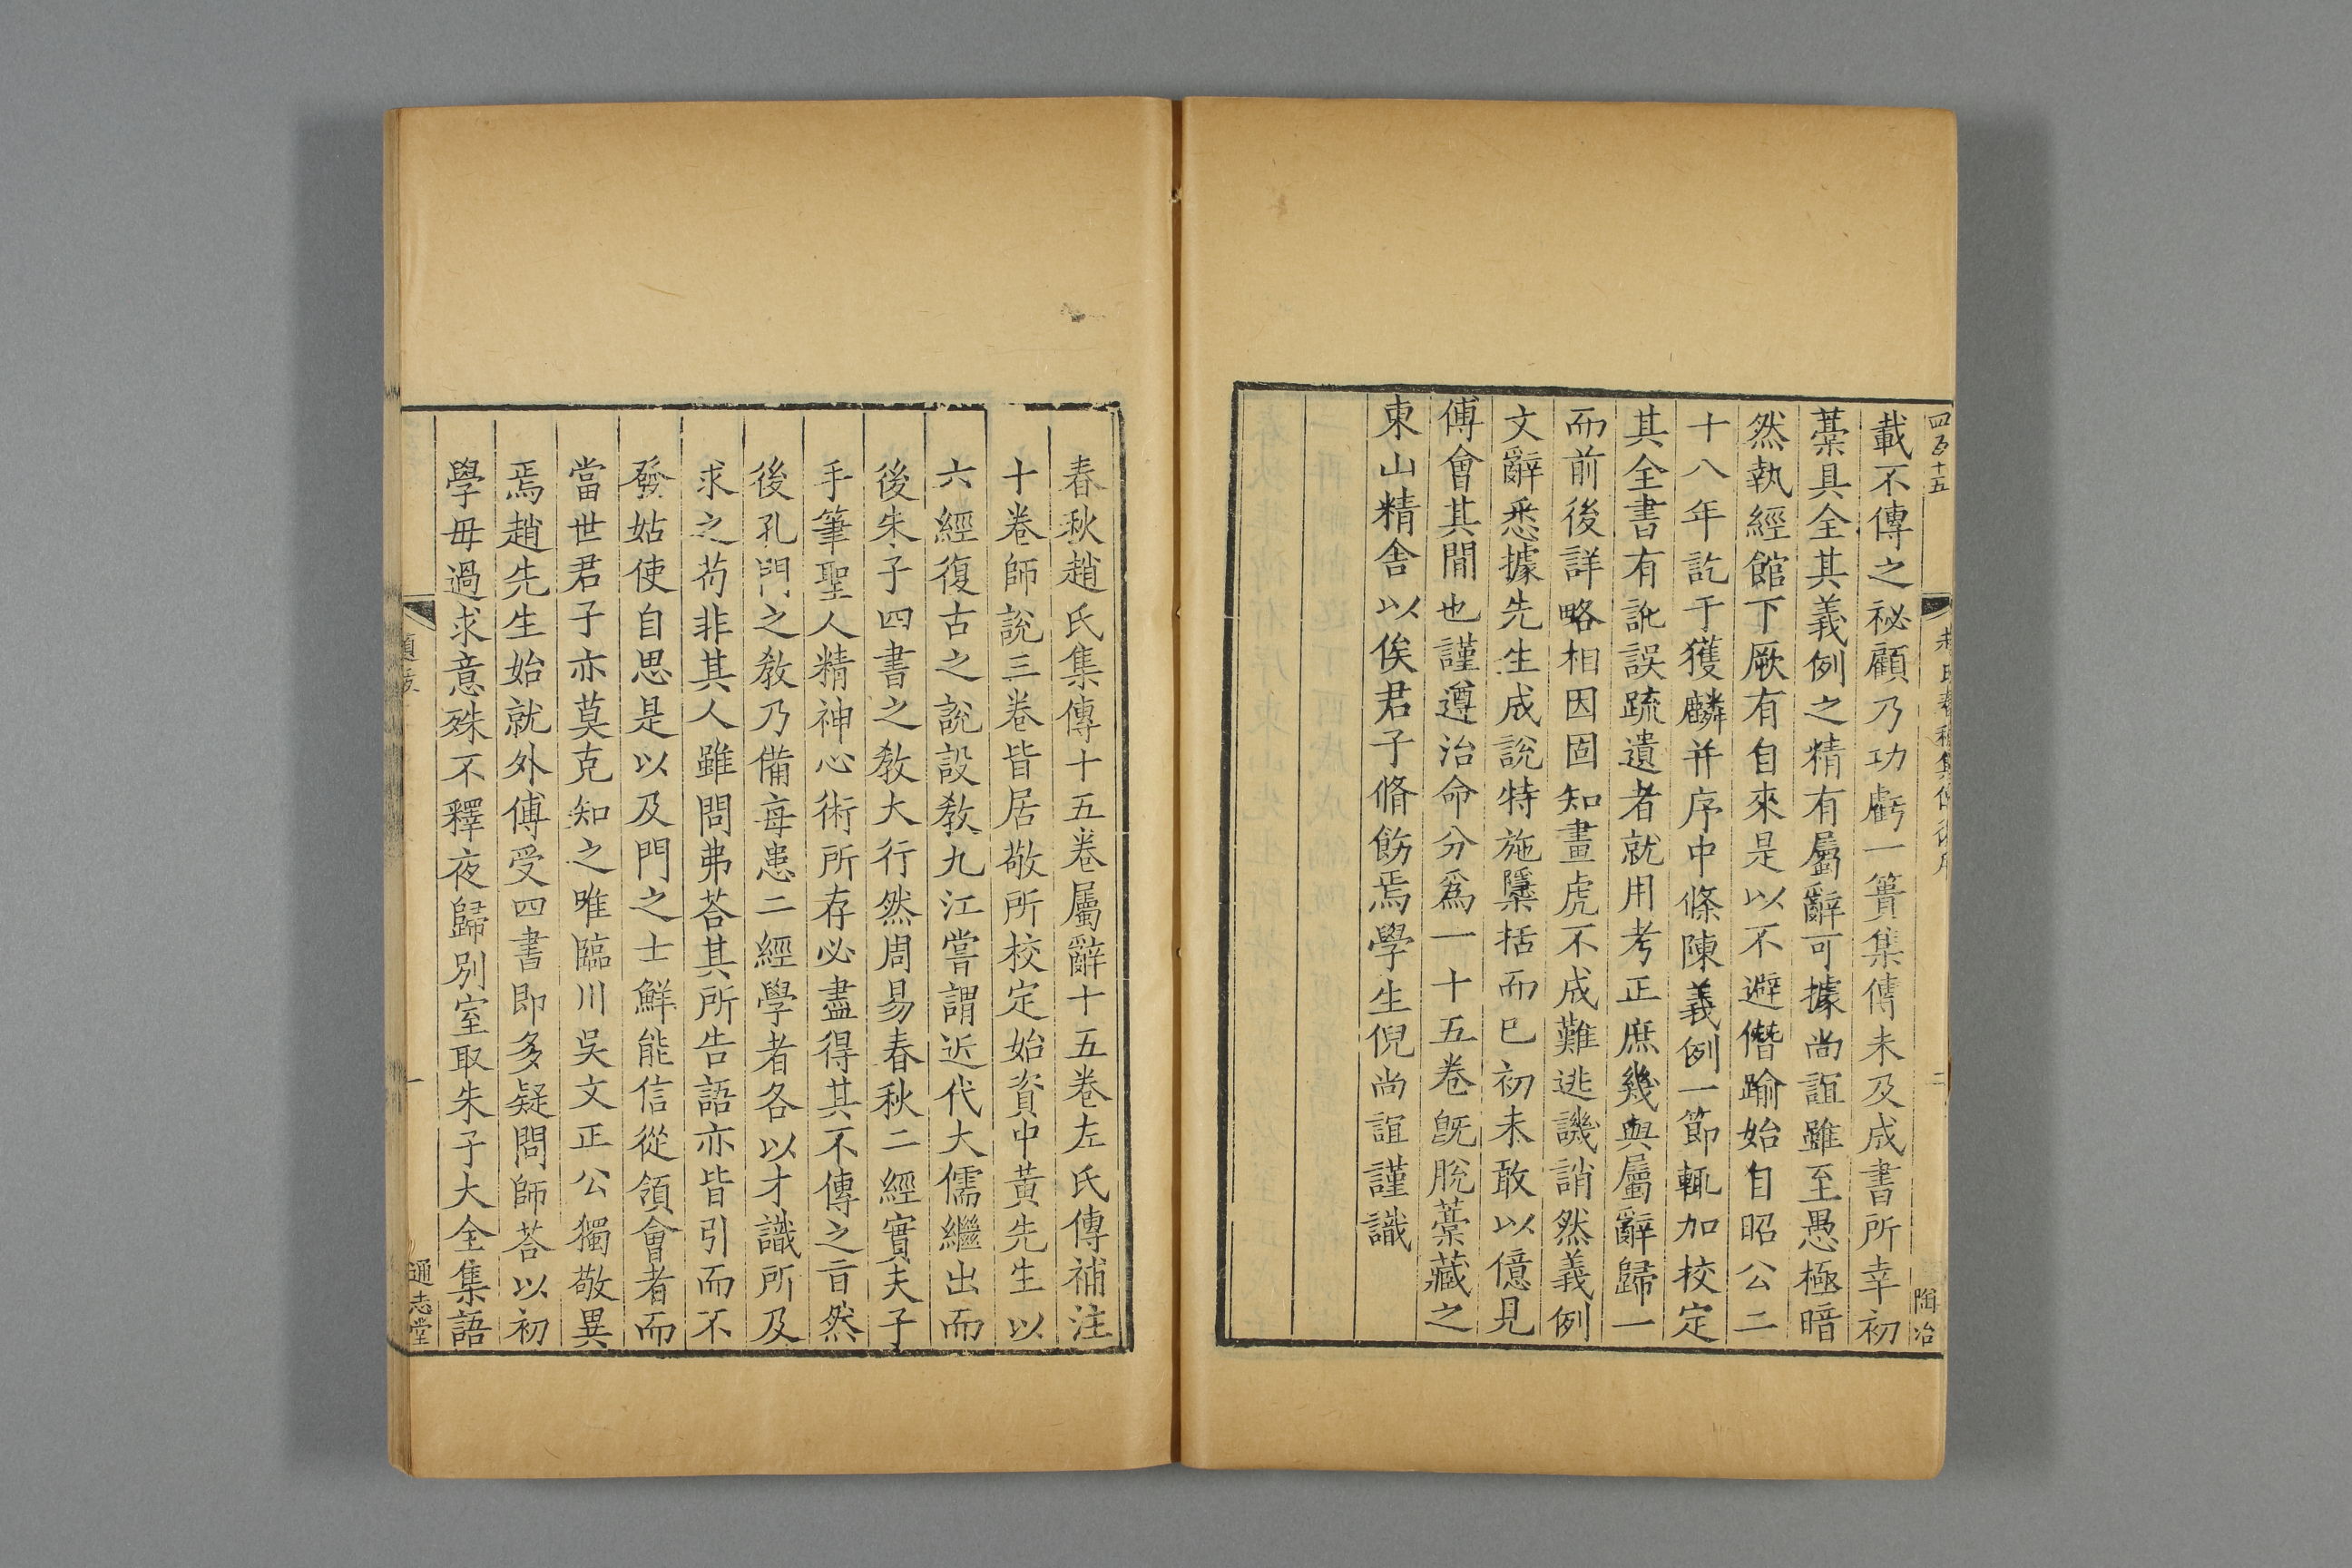 四百十五
春秋集傳後序
二
陶冶
載不傳之祕顧乃功虧一簣集傳未及成書所幸初
藁具全其義例之精有屬辭可據尚誼雖至愚極暗
然執經館下厥有自來是以不避僭踰始自昭公二
十八年訖于獲麟并序中條陳義例一節輒加校定
其全書有訛誤疏遺者就用考正庶幾與屬辭歸一
而前後詳略相因固知畫虎不成難逃譏誚然義例
文辭悉據先生成說特施檃栝而已初未敢以億見
傅會其間也謹遵治命分爲一十五卷旣脫藁藏之
東山精舍以俟君子脩飭焉學生倪尚誼謹識
春秋趙氏集傳十五卷屬辭十五卷左氏傳補注
十卷師說三卷皆居敬所校定始資中黃先生以
六經復古之說設敎九江嘗謂近代大儒繼出而
後朱子四書之敎大行然周易春秋二經實夫子
手筆聖人精神心術所存必盡得其不傳之旨然
後孔門之敎乃備每患二經學者各以才識所及
求之苟非其人雖問弗荅其所告語亦皆引而不
發姑使自思是以及門之士鮮能信從領會者而
當世君子亦莫克知之唯臨川吳文正公獨敬異
焉趙先生始就外傅受四書即多疑問師荅以初
學毋過求意殊不釋夜歸別室取朱子大全集語
一
通志堂